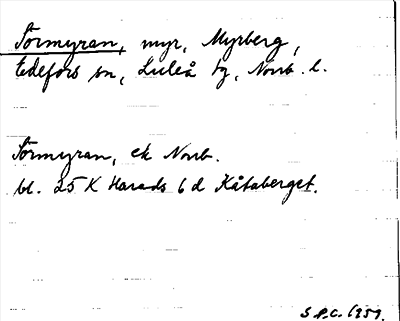 Tormyran, myr, Myrberg,
Edefors sn, Luleå tg, Norrb. l.
Tormyran, ek Norrb.
bl. 25 K Harads 6 d Kåtaberget.
S.P.C. 1951.